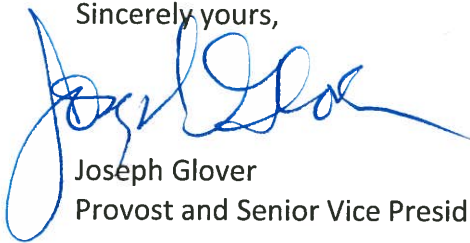 Sincerely yours,
Joseph Glover
Joseph Glover
Provost and Senior Vice Presid